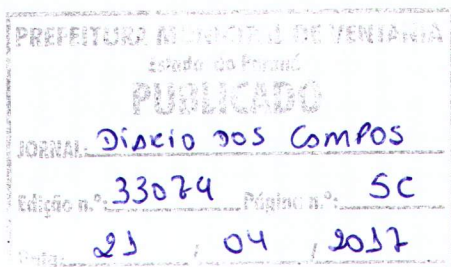 PREFEITURA MUNICIPAL DE VENTANIA
Estado do Paraná
PUBLICADO
JORNAL: DIÁRIO DOS CAMPOS
Edição n.º: 33074 Página n.º: 5C
Data: 21 / 04 / 2017